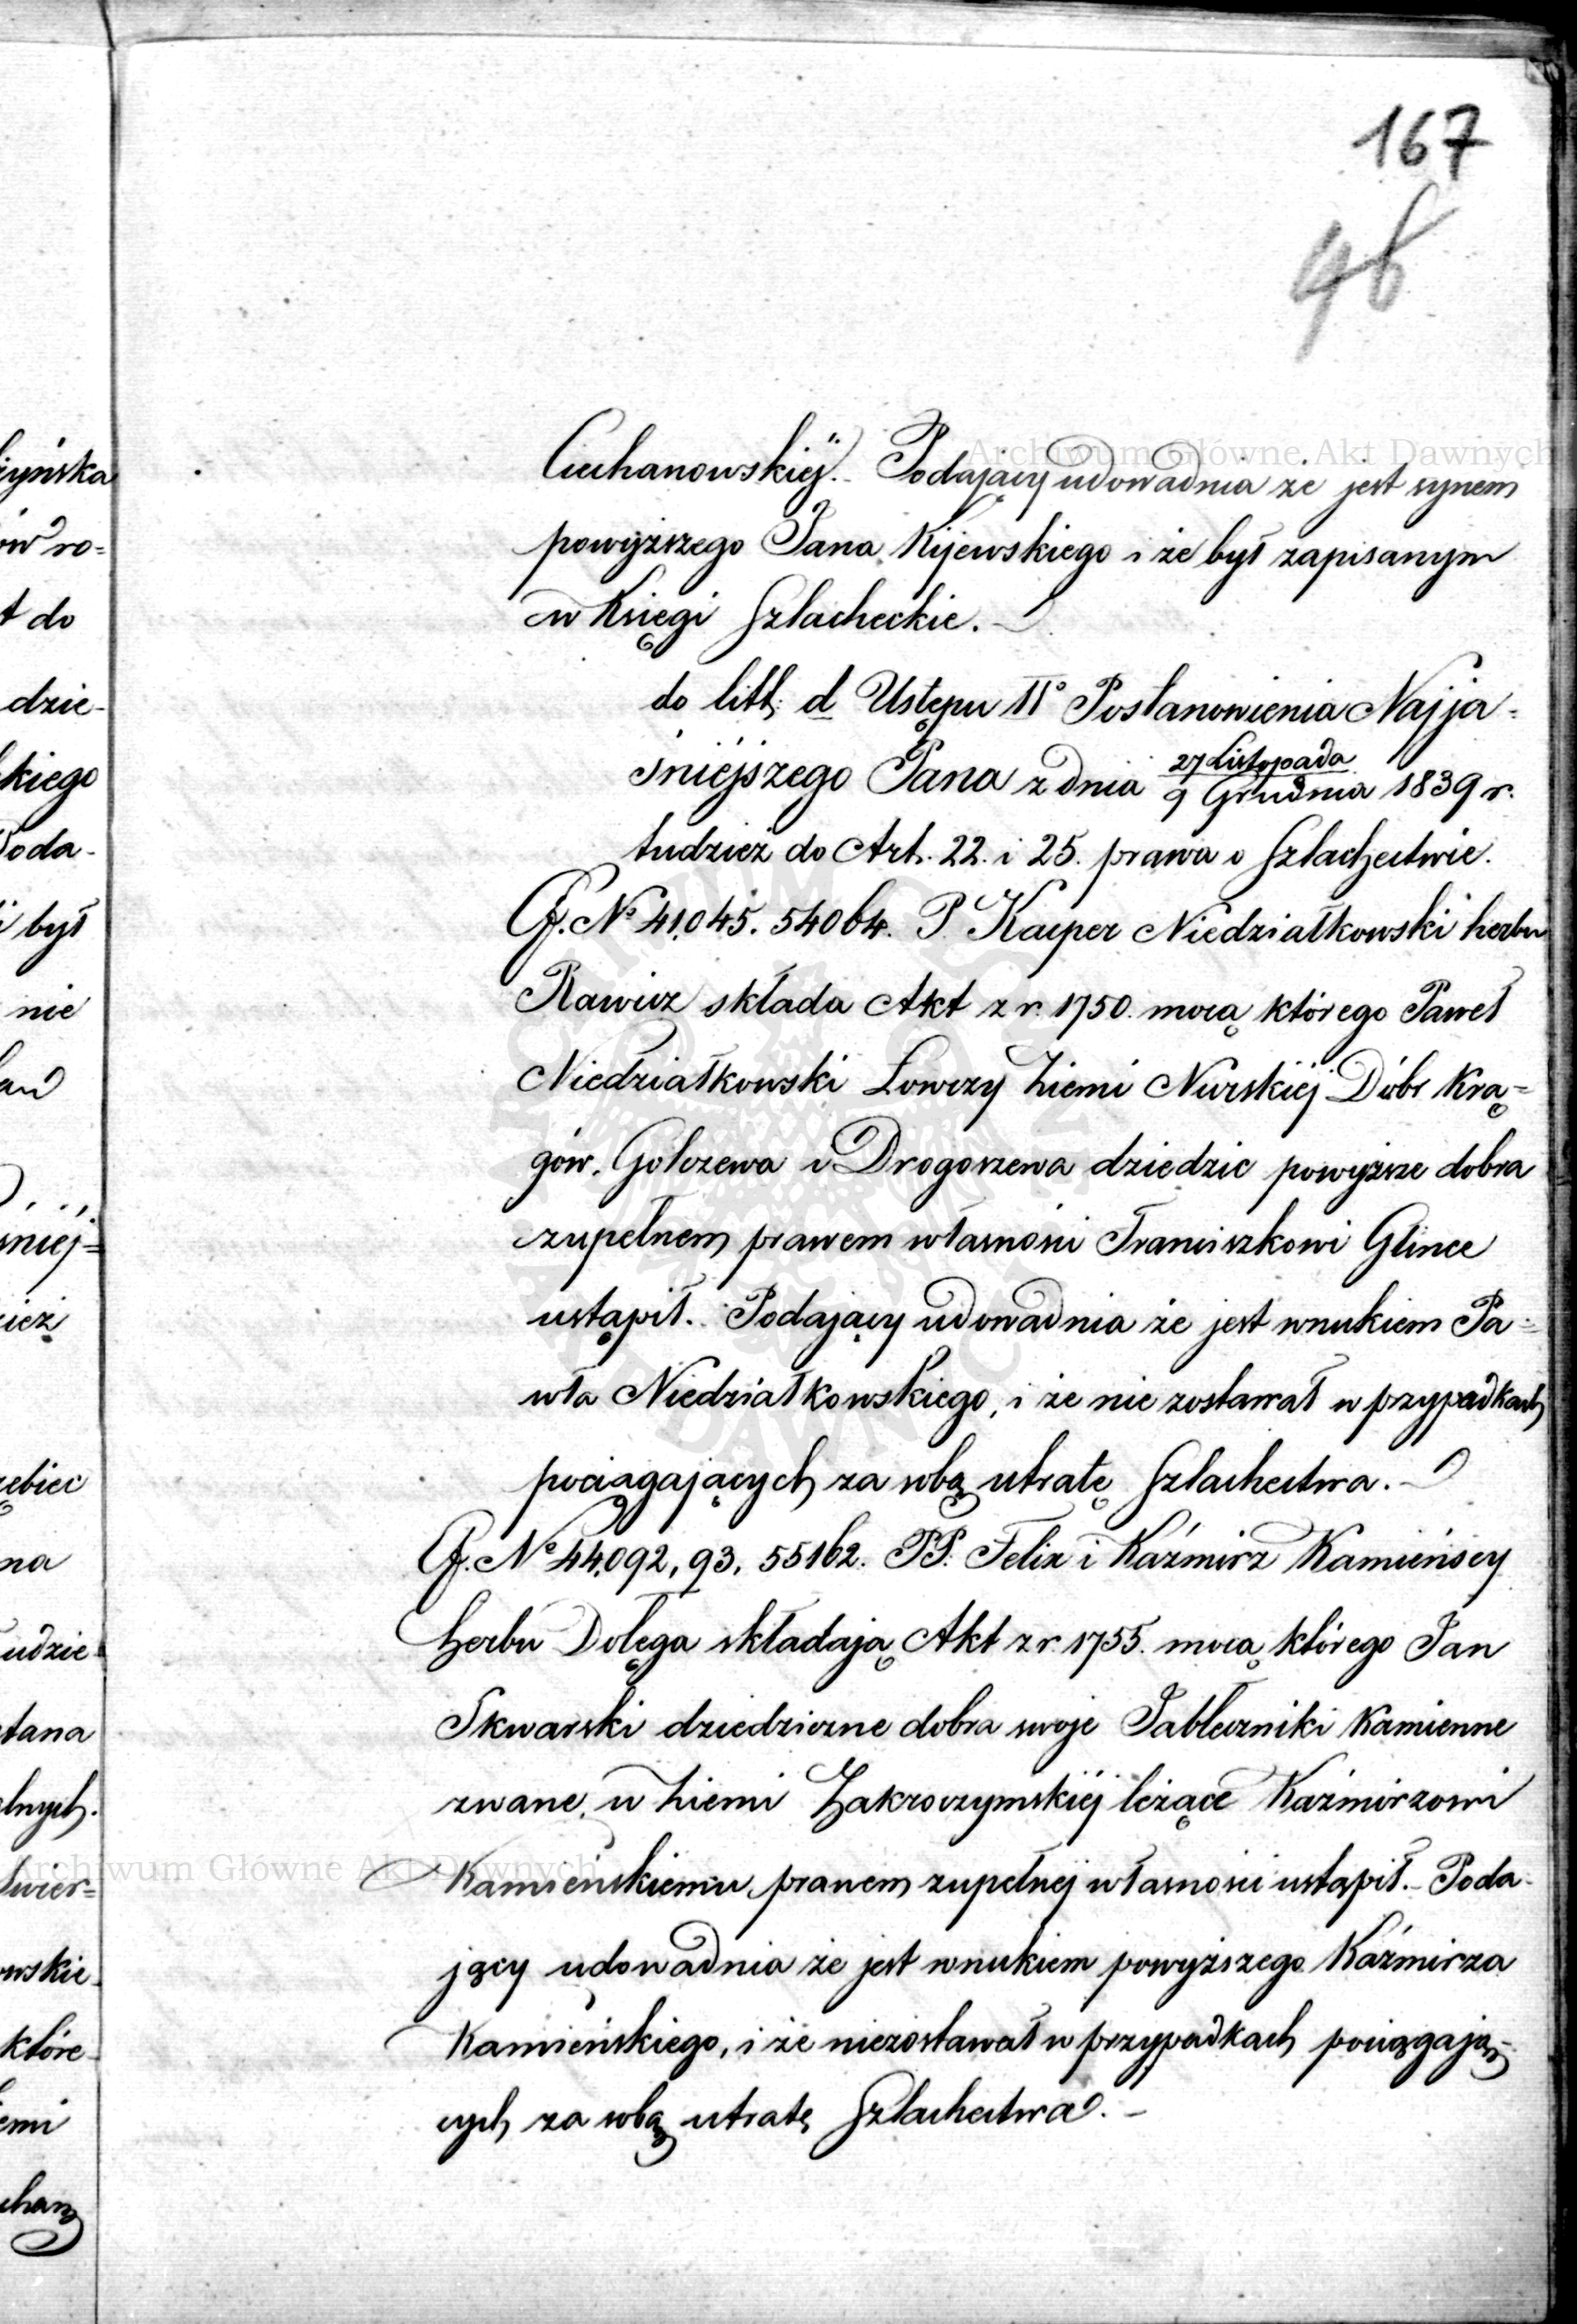 167
46
Ciechanowskiéj. Podający udowadnia że jest synem
powyższego Jana Kijewskiego i że był zapisanym
w Księgi Szlacheckie.
do litt: d Ustępu IIº Postanowienia Najja-
śniéjszego Pana z dnia 27 Listopada / 9 Grudnia 1839 r.
tudzież do Art. 22. i 25. prawa o Szlachectwie.
Nº 41,045. 54064. P. Kacper Niedziałkowski herbu
Rawicz składa Akt z r. 1750. mocą którego Paweł
Niedziałkowski Łowczy Ziemi Nurskiéj Dóbr Krą-
gów, Gołczewa i Drogoszewa dziedzic powyższe dobra
zupełnem prawem własności Franciszkowi Glince
ustąpił. Podający udowadnia że jest wnukiem Pa-
wła Niedziałkowskiego, i że nie zostawał w przypadkach
pociągających za sobą utratę Szlachectwa.
Nº 44,092, 93, 55162. PP. Felix i Kaźmirz Kamieńscy
herbu Dołęga składają Akt z r. 1755. mocą którego Jan
Skwarski dziedziczne dobra swoje Jabłeczniki Kamienne
zwane, w Ziemi Zakroczymskiéj leżące Kaźmirzowi
Kamieńskiemu prawem zupełnej własności ustąpił.- Poda-
jący udowadnia że jest wnukiem powyższego Kaźmirza
Kamieńskiego, i że niezostawał w przypadkach pociągają-
cych za sobą utratę Szlachectwa.-
Archiwum Główne Akt Dawnych
Archiwum Główne Akt Dawnych